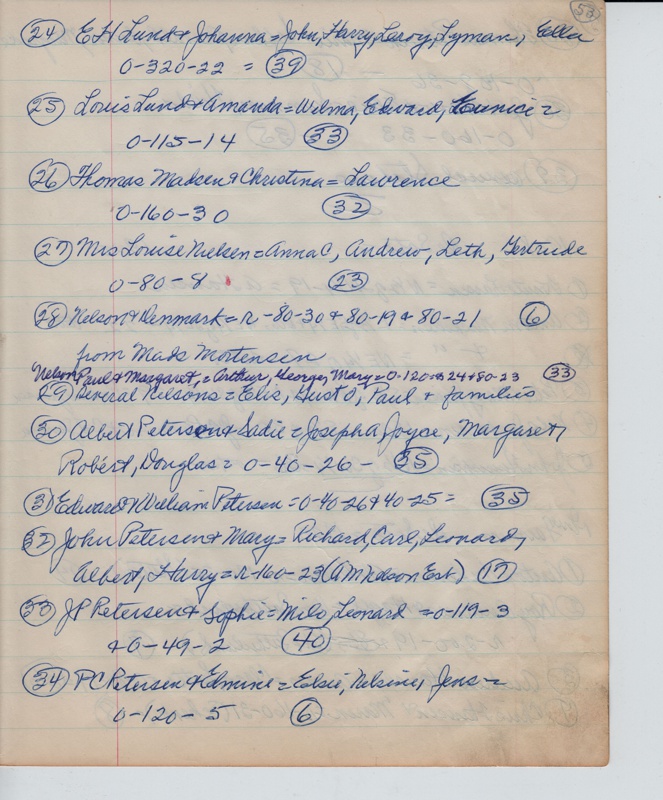 50
24 E H Lund & Johanna = John, Harry, Leroy, Lyman, Ella
0-320-22 = 39
25 Louis Lund & Amanda = Wilma, Edward, Eunice =
0-115-14 33
26 Thomas Madsen & Christina = Lawrence
0-160-30 32
27 Mrs Louise Nielsen = Anna C, Andrew, Leth, Gertrude
0-80-8 23
28 Nelson & Denmark = r -80-30 & 80-19 & 80-21 6
from Mads Mortensen
Nelson Paul & Margaret, = Arthur, George, Mary = 0-120- 24 & 80-23 33
29 Several Nelsons = Elis, Gust O, Paul & families
30 Albert Petersen & Sadie = Joseph a Joyce, Margaret,
Robert, Douglas = 0-40-26- 35
31 Edward & William Petersen = 0-40-26 & 40-25 = 35
32 John Petersen & Mary = Richard, Carl, Leonard,
Albert, Harry = r-160-23 (A M Nelson Est) 17
33 J P Petersen & Sophie = Milo, Leonard = 0-119-3
& 0-49-2 40
34 P C Petersen & Elmine = Elsie, Nelsine, Jens =
0-120-5 6